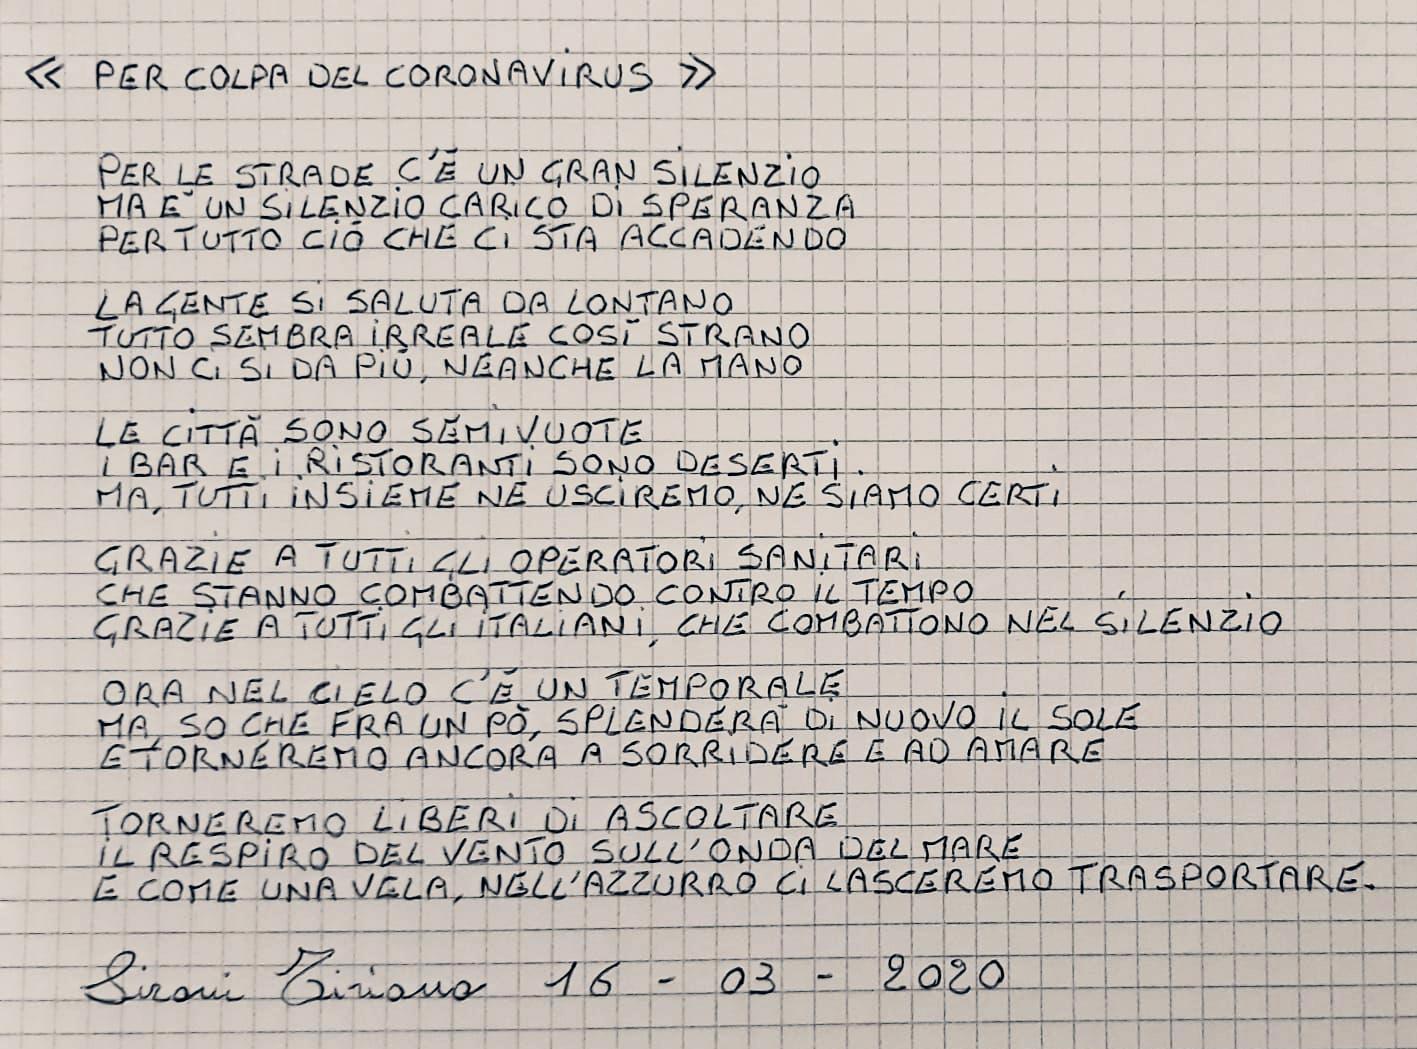 « PER COLPA DEL CORONAVIRUS »
PER LE STRADE C'È UN GRAN SILENZIO
MA È UN SILENZIO CARICO DI SPERANZA
PER TUTTO CIÒ CHE CI STA ACCADENDO
LA GENTE SI SALUTA DA LONTANO
TUTTO SEMBRA IRREALE COSÌ STRANO
NON CI SI DA PIÙ, NEANCHE LA MANO
LE CITTÀ SONO SEMIVUOTE
I BAR E I RISTORANTI SONO DESERTI.
MA, TUTTI INSIEME NE USCIREMO, NE SIAMO CERTI
GRAZIE A TUTTI GLI OPERATORI SANITARI
CHE STANNO COMBATTENDO CONTRO IL TEMPO
GRAZIE A TUTTI GLI ITALIANI, CHE COMBATTONO NEL SILENZIO
ORA NEL CIELO C'È UN TEMPORALE
MA, SO CHE FRA UN PÒ, SPLENDERÀ DI NUOVO IL SOLE
E TORNEREMO ANCORA A SORRIDERE E AD AMARE
TORNEREMO LIBERI DI ASCOLTARE
IL RESPIRO DEL VENTO SULL'ONDA DEL MARE
E COME UNA VELA, NELL'AZZURRO CI LASCEREMO TRASPORTARE.
Sironi Tiziano 16 - 03 - 2020